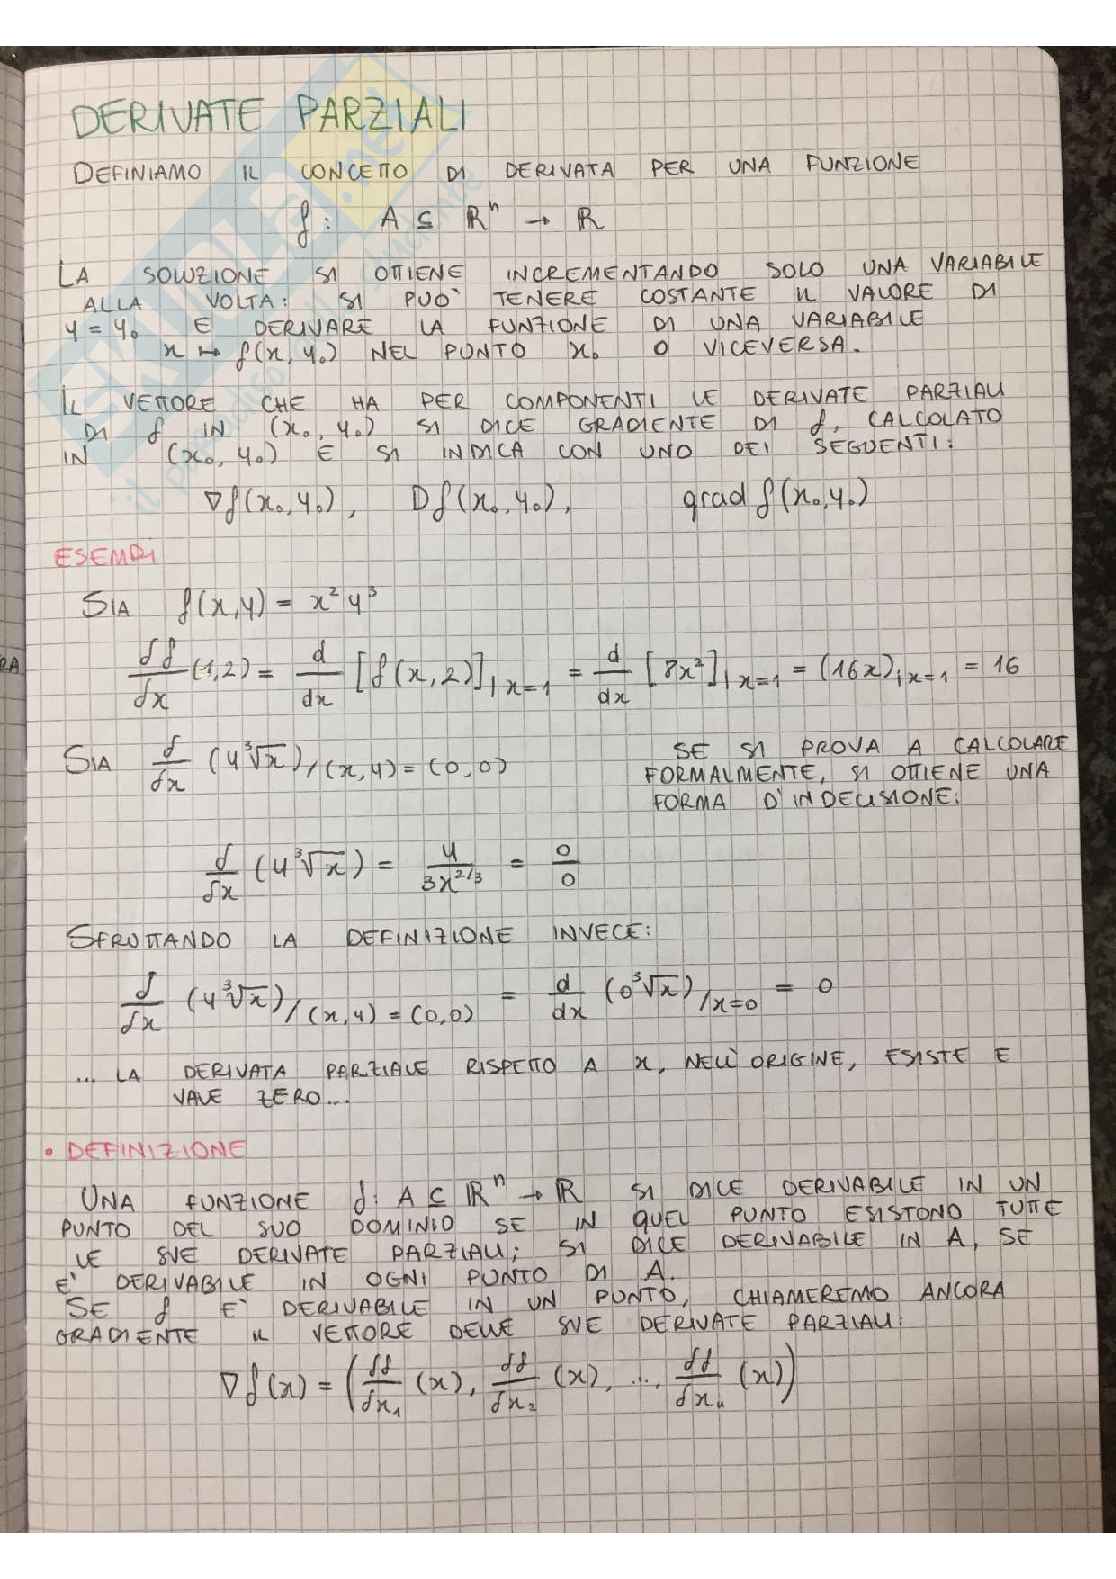 DERIVATE PARZIALI
DEFINIAMO IL CONCETTO DI DERIVATA PER UNA FUNZIONE
f: A ⊆ ℝⁿ → ℝ
LA SOLUZIONE SI OTTIENE INCREMENTANDO SOLO UNA VARIABILE
ALLA VOLTA: SI PUO' TENERE COSTANTE IL VALORE DI
y = y₀ E DERIVARE LA FUNZIONE DI UNA VARIABILE
x ↦ f(x, y₀) NEL PUNTO x₀ O VICEVERSA.
IL VETTORE CHE HA PER COMPONENTI LE DERIVATE PARZIALI
DI f IN (x₀, y₀) SI DICE GRADIENTE DI f, CALCOLATO
IN (x₀, y₀) E SI INDICA CON UNO DEI SEGUENTI:
∇f(x₀, y₀), Df(x₀, y₀), grad f(x₀, y₀)
ESEMPI
SIA f(x,y) = x² y³
δf/δx (1,2) = d/dx [f(x,2)]|x=1 = d/dx [8x²]|x=1 = (16x)|x=1 = 16
SIA δ/δx (y ∛x)/(x,y)=(0,0) SE SI PROVA A CALCOLARE
FORMALMENTE, SI OTTIENE UNA
FORMA D'INDECISIONE:
δ/δx (y ∛x) = y/3x^2/3 = 0/0
SFRUTTANDO LA DEFINIZIONE INVECE:
δ/δx (y ∛x)/(x,y)=(0,0) = d/dx (0 ∛x)/x=0 = 0
... LA DERIVATA PARZIALE RISPETTO A x, NELL'ORIGINE, ESISTE E
VALE ZERO...
• DEFINIZIONE
UNA FUNZIONE f: A ⊆ ℝⁿ → ℝ SI DICE DERIVABILE IN UN
PUNTO DEL SUO DOMINIO SE IN QUEL PUNTO ESISTONO TUTTE
LE SUE DERIVATE PARZIALI; SI DICE DERIVABILE IN A, SE
E' DERIVABILE IN OGNI PUNTO DI A.
SE f E' DERIVABILE IN UN PUNTO, CHIAMEREMO ANCORA
GRADIENTE IL VETTORE DELLE SUE DERIVATE PARZIALI:
∇f(x) = (δf/δx₁ (x), δf/δx₂ (x), ..., δf/δxₙ (x))